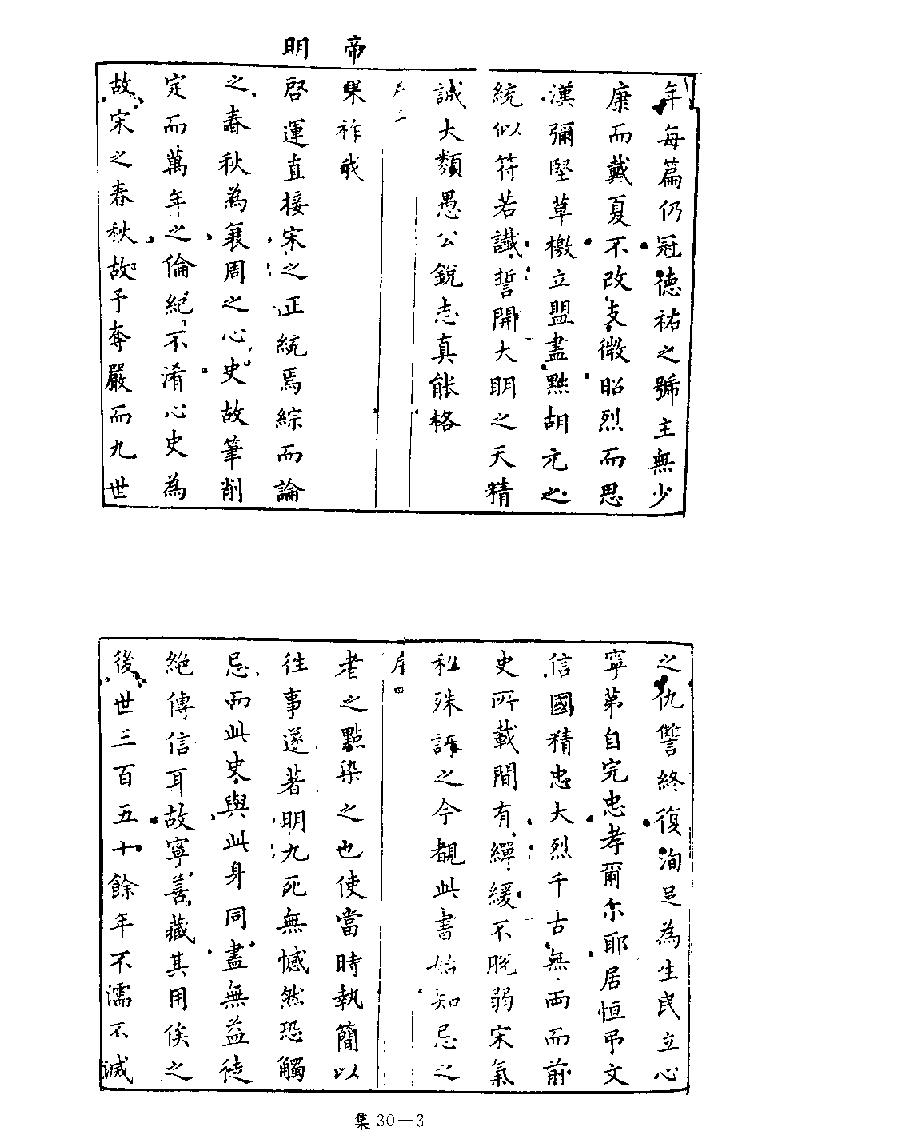 年每篇仍冠德祐之號主無少
康而戴夏不改支微昭烈而思
漢彌堅草檄立盟盡黜胡元之
統似符若讖誓開大明之天精
誠大類愚公銳志真能格
帝
果祚我
明
啓運直接宋之正統焉綜而論
之春秋為衰周之心史故筆削
定而萬年之倫紀不淆心史為
故宋之春秋故予奪嚴而九世
之仇讐終復洵足為生民立心
寧第自完忠孝爾尔耶居恒弔文
信國精忠大烈千古無兩而前
史所載間有繟緩不脫弱宋氣
私殊訝之今覩此書始知忌之
序四
老之點染之也使當時執簡以
往事遂著明九死無憾然恐觸
忌而此史與此身同盡無益徒
絕傳信耳故寧善藏其用俟之
後世三百五十餘年不濡不滅
集30—3